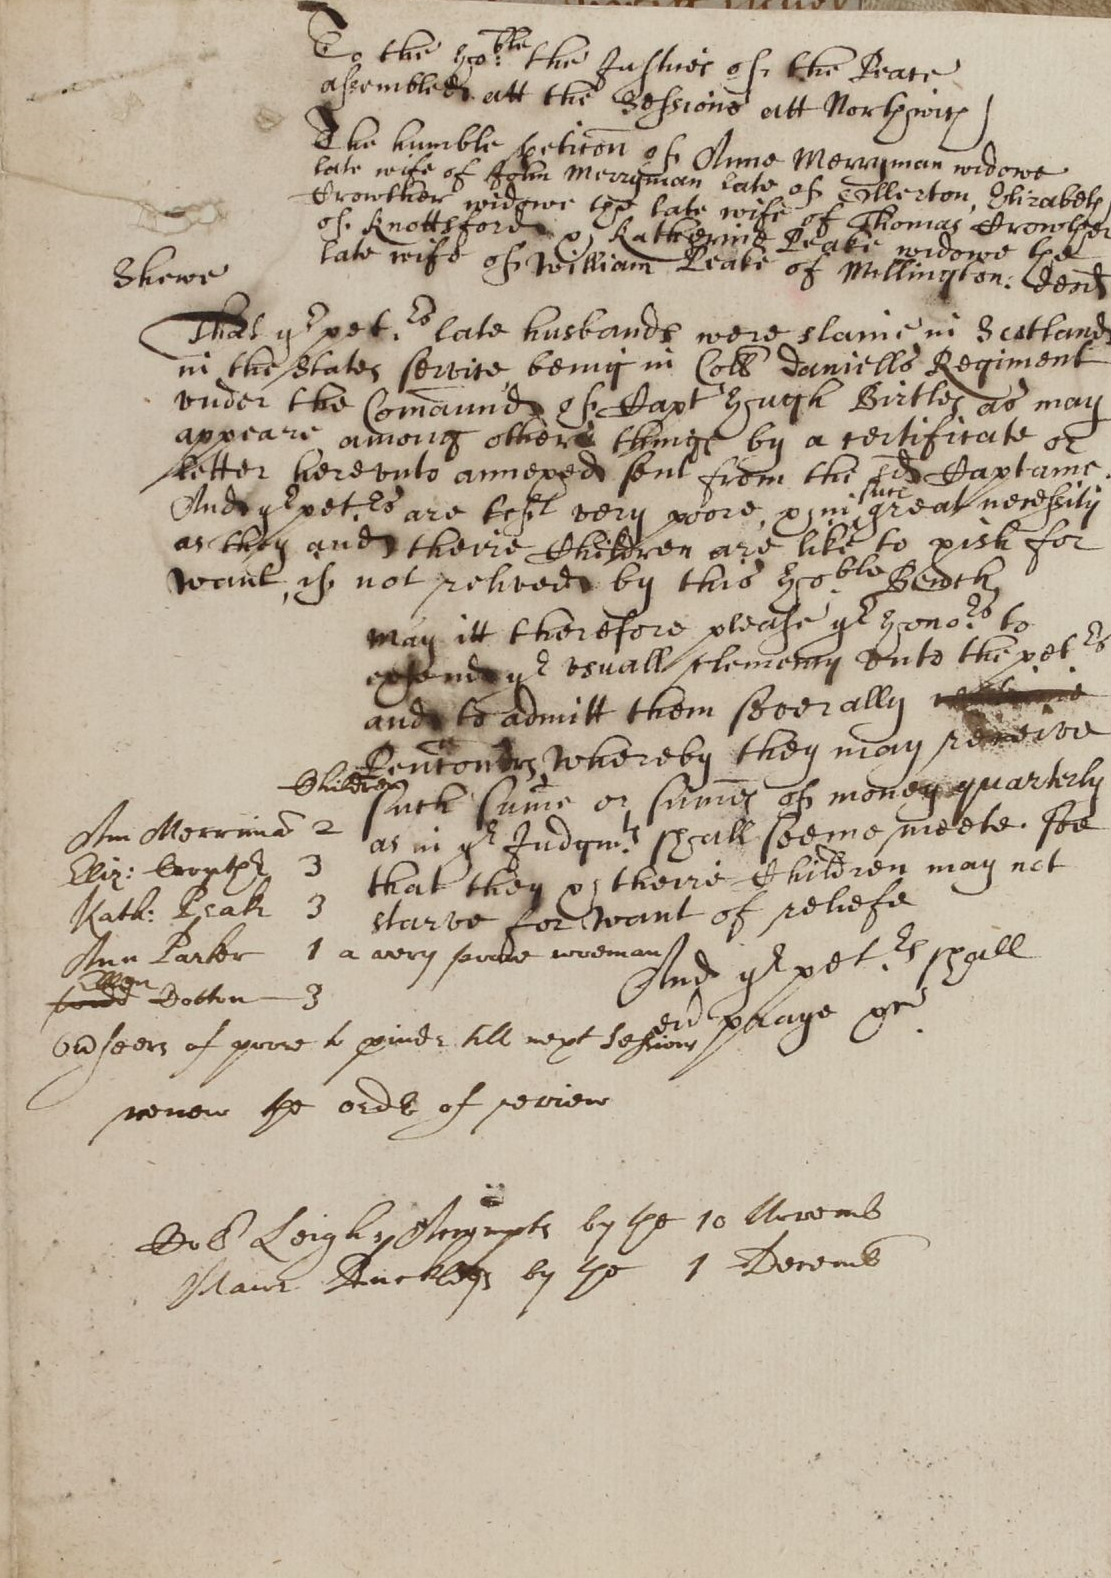 To the Hoble: the Justices of the Peace
assembled att the Sessions att Northwich
The humble peticon of Anne Merryman widowe
late wife of John Merryman late of Ollerton, Elizabeth
Crowther widowe the late wife of Thomas Crowther
of Knottsford & Katherine Peake widowe the
late wife of William Peake of Millington: decd
Shewe
That yr petrs late husbands were slaine in Scotland
in the States service being in Coll Daniells Regiment
vnder the Comaund of Capt Hugh Birtles as may
appeare among other things by a certificate or
letter herevnto annexed sent from the sd Captaine.
And yr petrs are left very poore, & in such great necessity
as they and theire Children are like to pish for
want, if not relived by this Hoble Bench
May itt therefore please yr Honors to
extend yr vsuall clemency vnto the petrs
and to admitt them severally
Pencon̄ers, whereby they may receive
such sum̄e or sum̄es of money quarterly
as in yr Judgmts shall seeme meete. Soe
that they & theire Children may not
starve for want of reliefe
And yr petrs shall
ever praye &c
Children
Ann Merriman 2
Eliz: Crowthr 3
Kath: Peak 3
Ann Parker 1 a very poore woeman
Ellen Dotton 3
Ovrseers of poore to pvide till next Sessions
renew the order of review
Rob Leigh Accompts by the 10 Novemb
by the 1 Decemb